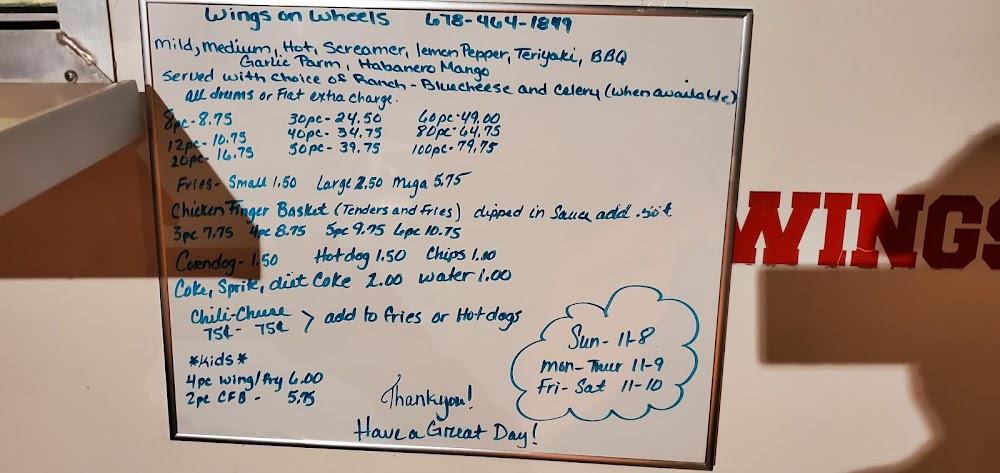 Wings on Wheels 678-464-1899
Mild, medium, Hot, Screamer, lemon Pepper, Teriyaki, BBQ
Garlic Parm, Habanero Mango
Served with choice of Ranch - Bluecheese and Celery (when available)
all drums or Flat extra charge.
8pc - 8.75 30pc - 24.50 60pc - 49.00
12pc - 10.75 40pc - 34.75 80pc - 64.75
20pc - 16.75 50pc - 39.75 100pc - 79.75
Fries - Small 1.50 Large 2.50 Mega 5.75
Chicken Finger Basket (Tenders and Fries) dipped in Sauce add .50¢
3pc 7.75 4pc 8.75 5pc 9.75 6pc 10.75
Corndog - 1.50 Hotdog 1.50 Chips 1.00
Coke, Sprite, diet Coke 2.00 water 1.00
Chili - Cheese > add to fries or Hotdogs
75¢ - 75¢
Sun - 11-8
Mon - Thur 11-9
Fri - Sat 11-10
*Kids*
4pc wing/fry 6.00
2pc CFB - 5.75
Thankyou!
Have a Great Day!
WINGS